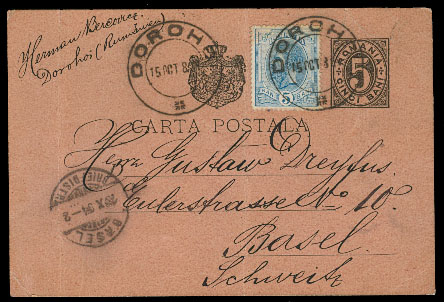 Herman Bercovici
Dorohoi (Rumänien)
DOROHOI
15 OCT 8
DOROHOI
15 OCT 8
5
ROMANIA
5
CINCI BANI
CARTA POSTALA
Herrn Gustav Dreyfus.
Eulerstrasse No 10.
Basel
Schweitz
BASEL
29 X 94 - 2
BRIEF DISTR.